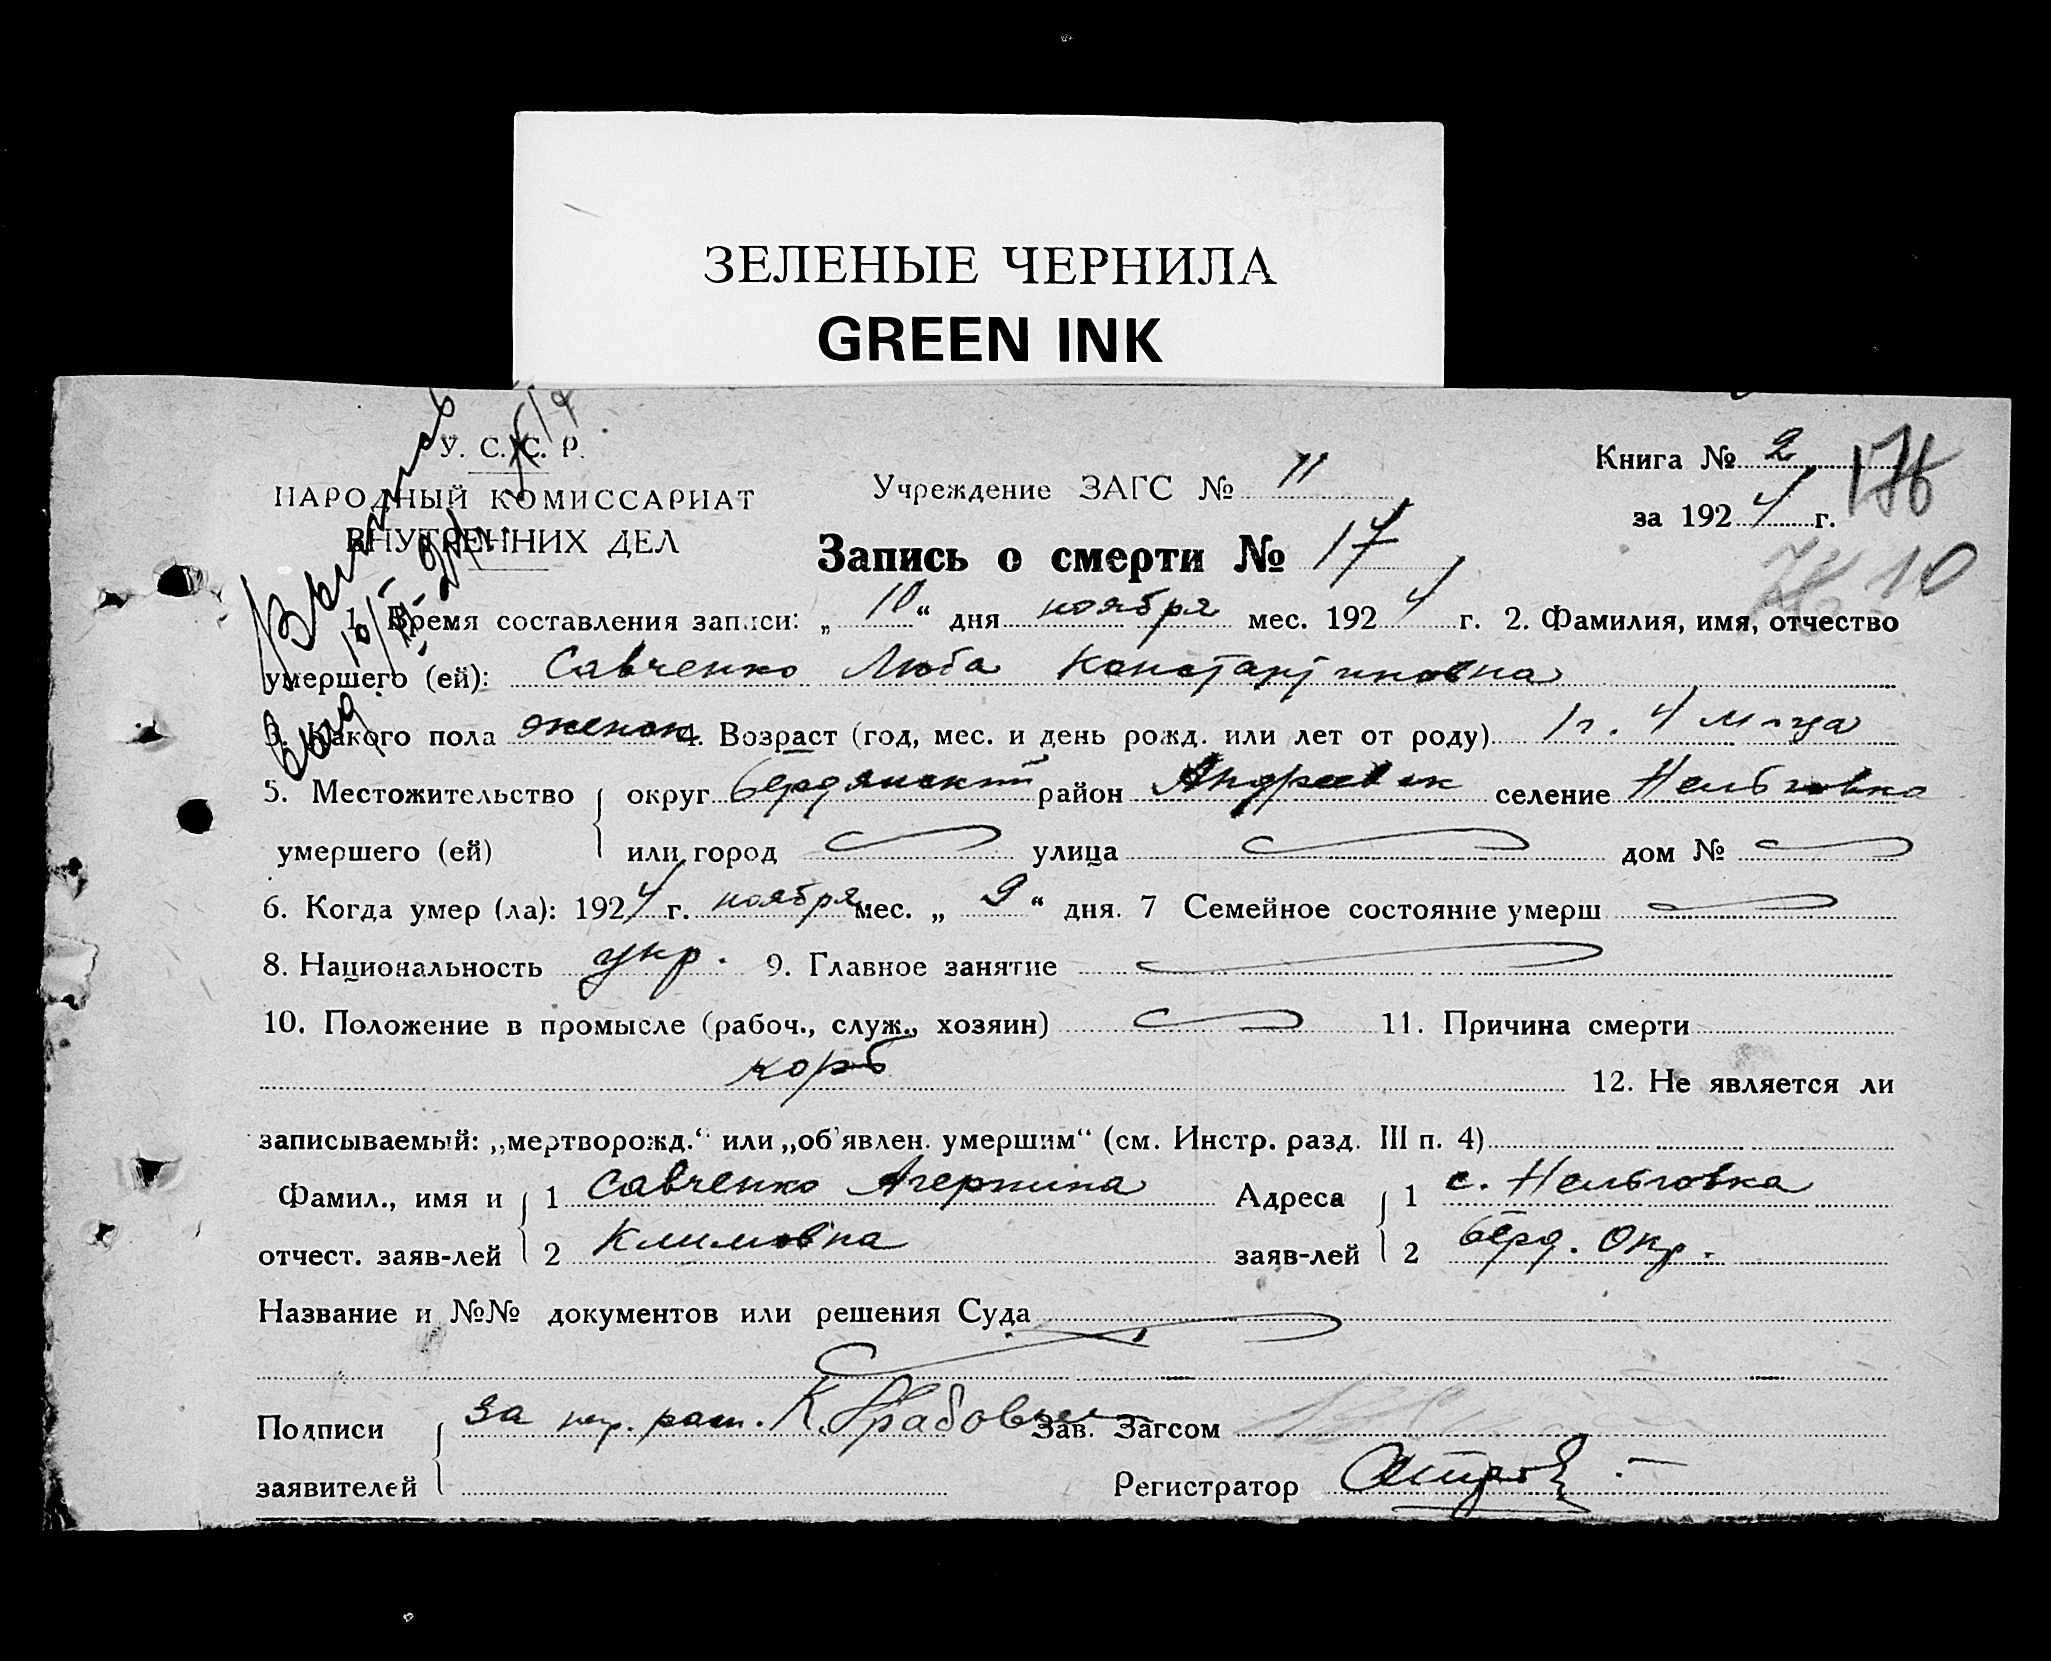 ЗЕЛЕНЫЕ ЧЕРНИЛА
GREEN INK
У. С. С. Р.
НАРОДНЫЙ КОМИССАРИАТ
ВНУТРЕННИХ ДЕЛ
Учреждение ЗАГС № 11
Книга № 2
за 1924 г.
176
10
Запись о смерти № 17
1. Время составления записи: „ 10 “ дня ноября мес. 1924 г. 2. Фамилия, имя, отчество
умершего (ей): Савченко Люба Константиновна
3. Какого пола женск 4. Возраст (год, мес. и день рожд. или лет от роду) 1 г. 4 м-ца
5. Местожительство округ Бердянский район Андреевск селение Нельговка
умершего (ей) или город улица дом №
6. Когда умер (ла): 1924 г. ноября мес. „ 9 “ дня. 7 Семейное состояние умерш
8. Национальность укр. 9. Главное занятие
10. Положение в промысле (рабоч., служ., хозяин) 11. Причина смерти
корь 12. Не является ли
записываемый: „мертворожд.“ или „об'явлен. умершим“ (см. Инстр. разд. III п. 4)
Фамил., имя и 1 Савченко Адреса 1 с. Нельговка
отчест. заяв-лей 2 Климовна заяв-лей 2 Берд. Окр.
Название и №№ документов или решения Суда
Подписи за К. Зав. Загсом
заявителей Регистратор